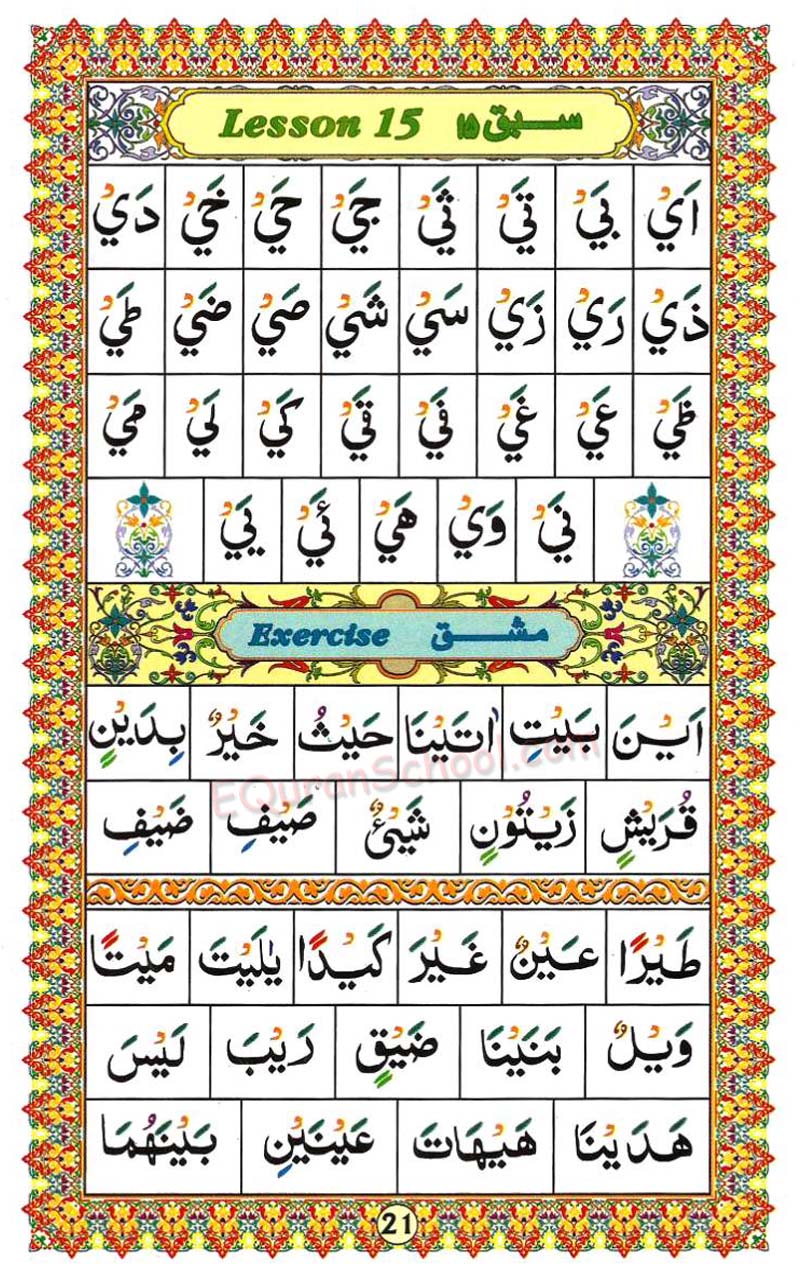 Lesson 15 سبق ۱۵
اَيْ بَيْ تَيْ ثَيْ جَيْ حَيْ خَيْ دَيْ
ذَيْ رَيْ زَيْ سَيْ شَيْ صَيْ ضَيْ طَيْ
ظَيْ عَيْ غَيْ فَيْ قَيْ كَيْ لَيْ مَيْ
نَيْ وَيْ هَيْ ئَيْ يَيْ
Exercise مشق
اَيْنَ بَيْتِ اٰتَيْنَا حَيْثُ خَيْرٌ بِدَيْنٍ
قُرَيْشٍ زَيْتُوْنٍ شَيْئٌ صَيْفِ ضَيْفِ
طَيْرًا عَيْنٌ غَيْرَ كَيْدًا يٰلَيْتَ مَيْتًا
وَيْلٌ بَنَيْنَا ضَيْقٍ رَيْبَ لَيْسَ
هَدَيْنَا هَيْهَاتَ عَيْنَيْنِ بَيْنَهُمَا
21
EQuranSchool.com